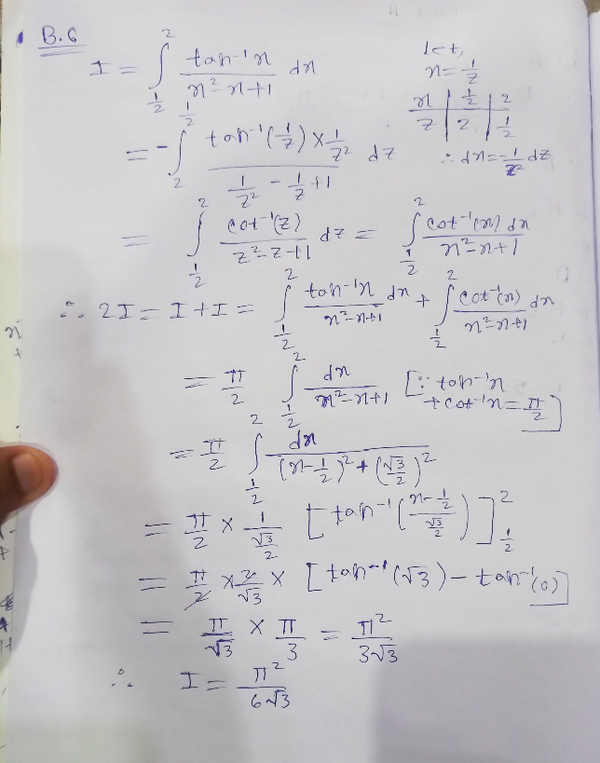 B.6
I = ∫_{1/2}^{2} tan⁻¹x / (x²-x+1) dx
let,
x = 1/z
x | 1/2 | 2
z | 2 | 1/2
∴ dx = -1/z² dz
= -∫_{2}^{1/2} (tan⁻¹(1/z) × 1/z²) / (1/z² - 1/z + 1) dz
= ∫_{1/2}^{2} cot⁻¹(z) / (z²-z+1) dz = ∫_{1/2}^{2} cot⁻¹(x) dx / (x²-x+1)
∴ 2I = I+I = ∫_{1/2}^{2} tan⁻¹x / (x²-x+1) dx + ∫_{1/2}^{2} cot⁻¹(x) / (x²-x+1) dx
= π/2 ∫_{1/2}^{2} dx / (x²-x+1) [∵ tan⁻¹x + cot⁻¹x = π/2]
= π/2 ∫_{1/2}^{2} dx / ((x-1/2)² + (√3/2)²)
= π/2 × 1/(√3/2) [tan⁻¹((x-1/2)/(√3/2))]_{1/2}^{2}
= π/2 × 2/√3 × [tan⁻¹(√3) - tan⁻¹(0)]
= π/√3 × π/3 = π²/3√3
∴ I = π²/6√3